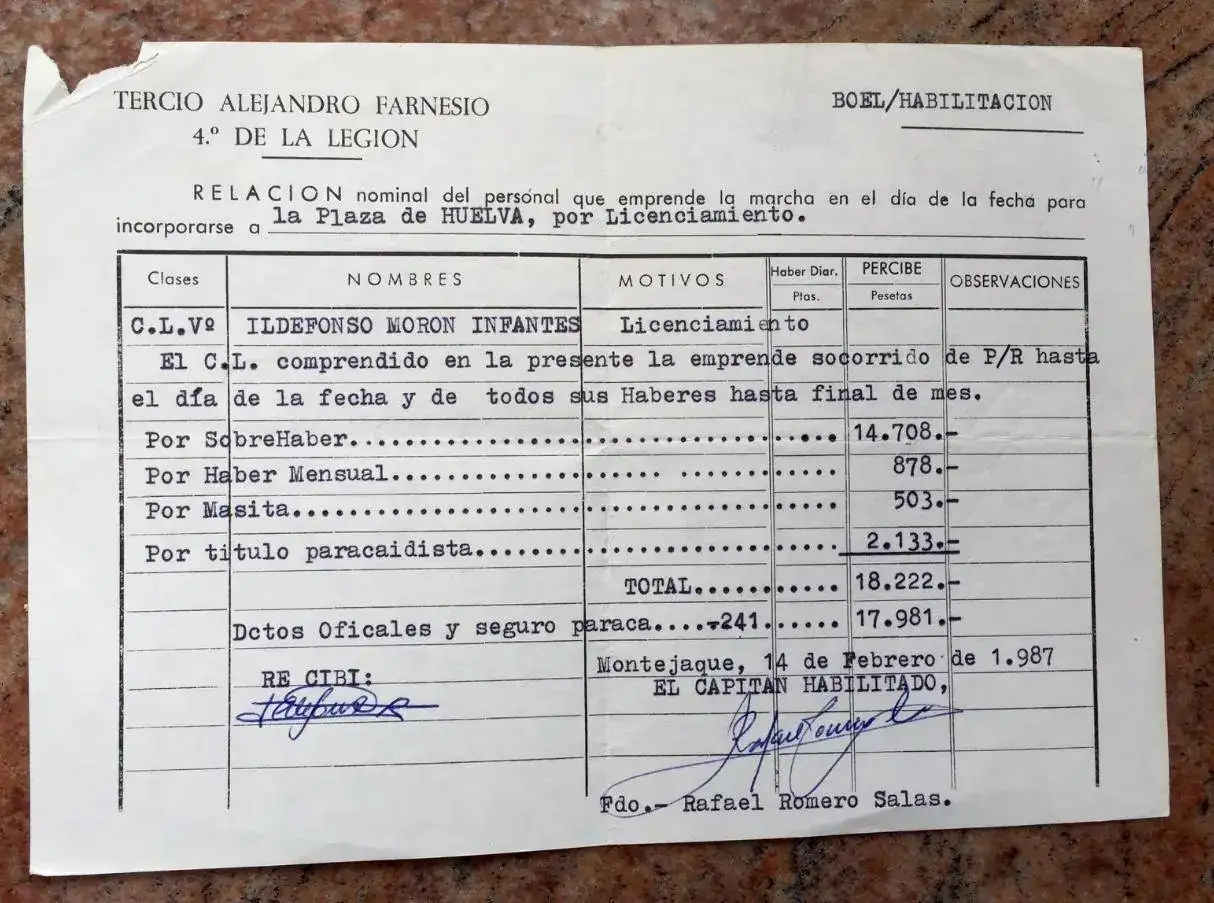 TERCIO ALEJANDRO FARNESIO
4.º DE LA LEGION
BOEL/HABILITACION
RELACION nominal del personal que emprende la marcha en el día de la fecha para
incorporarse a la Plaza de HUELVA, por Licenciamiento.
Clases NOMBRES MOTIVOS Haber Diar. Ptas. PERCIBE Pesetas OBSERVACIONES
C.L.Vº ILDEFONSO MORON INFANTES Licenciamiento
El C.L. comprendido en la presente la emprende socorrido de P/R hasta
el día de la fecha y de todos sus Haberes hasta final de mes.
Por SobreHaber........................................ 14.708.-
Por Haber Mensual.................... ............. 878.-
Por Masita............................................. 503.-
Por titulo paracaidista............................... 2.133.-
TOTAL............ 18.222.-
Dctos Oficales y seguro paraca....-241....... 17.981.-
Montejaque, 14 de Febrero de 1.987
RE CIBI:
EL CAPITAN HABILITADO,
Fdo.- Rafael Romero Salas.